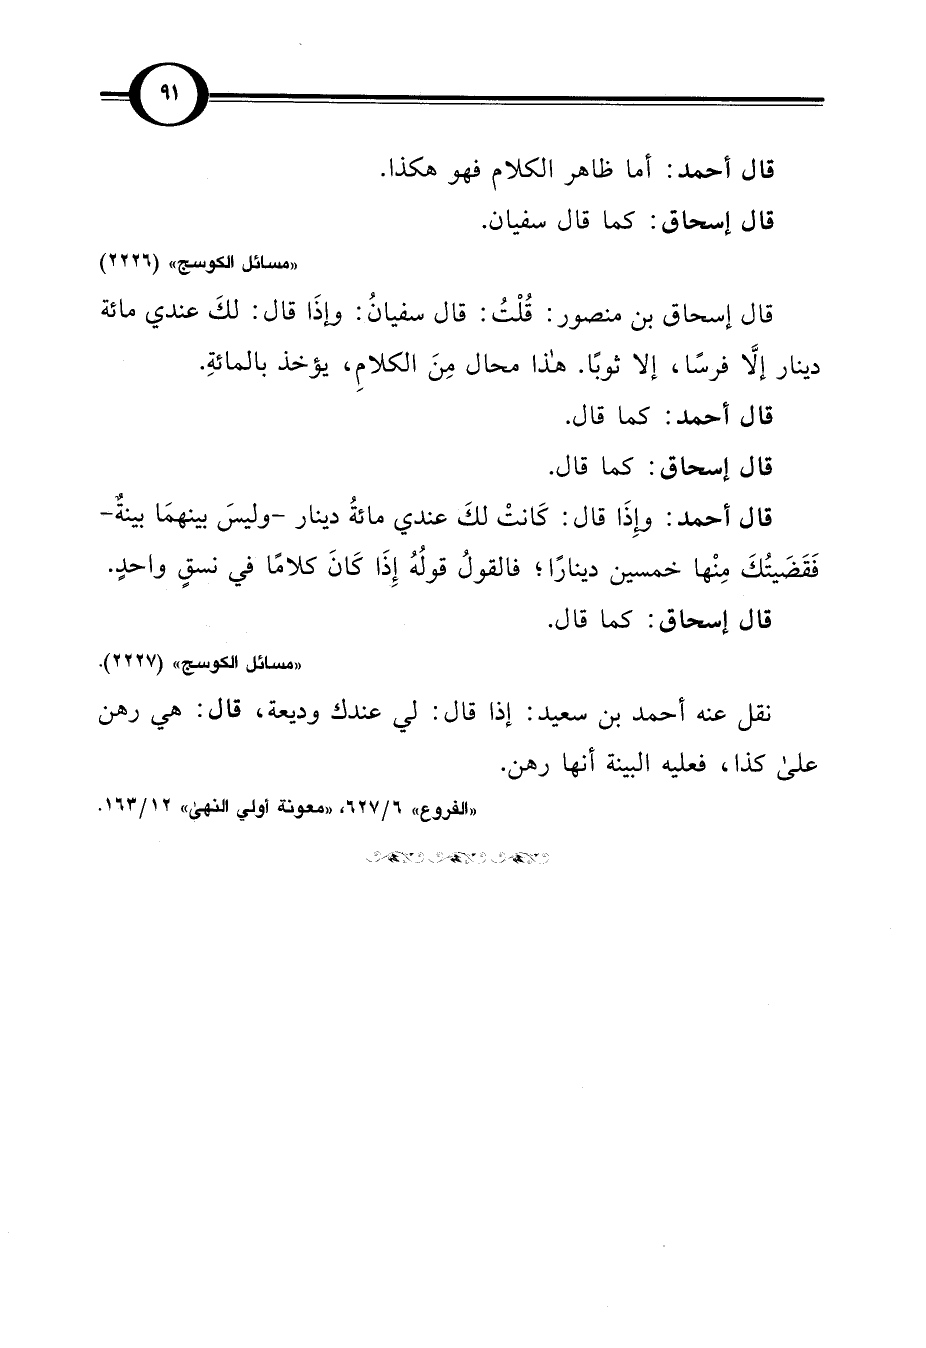 ٩١
قال أحمد: أما ظاهر الكلام فهو هكذا.
قال إسحاق: كما قال سفيان.
«مسائل الكوسج» (٢٢٢٦)
قال إسحاق بن منصور: قُلْتُ: قال سفيانُ: وإِذَا قال: لكَ عندي مائة
دينار إلَّا فرسًا، إلا ثوبًا. هذا محال مِنَ الكلامِ، يؤخذ بالمائةِ.
قال أحمد: كما قال.
قال إسحاق: كما قال.
قال أحمد: وإِذَا قال: كَانتْ لكَ عندي مائةُ دينار -وليسَ بينهمَا بينةٌ-
فَقَضَيتُكَ مِنْها خمسين دينارًا؛ فالقولُ قولُهُ إِذَا كَانَ كلامًا في نسقٍ واحدٍ.
قال إسحاق: كما قال.
«مسائل الكوسج» (٢٢٢٧).
نقل عنه أحمد بن سعيد: إذا قال: لي عندك وديعة، قال: هي رهن
علىٰ كذا، فعليه البينة أنها رهن.
«الفروع» ٦/٦٢٧، «معونة أولي النهىٰ» ١٢/١٦٣.